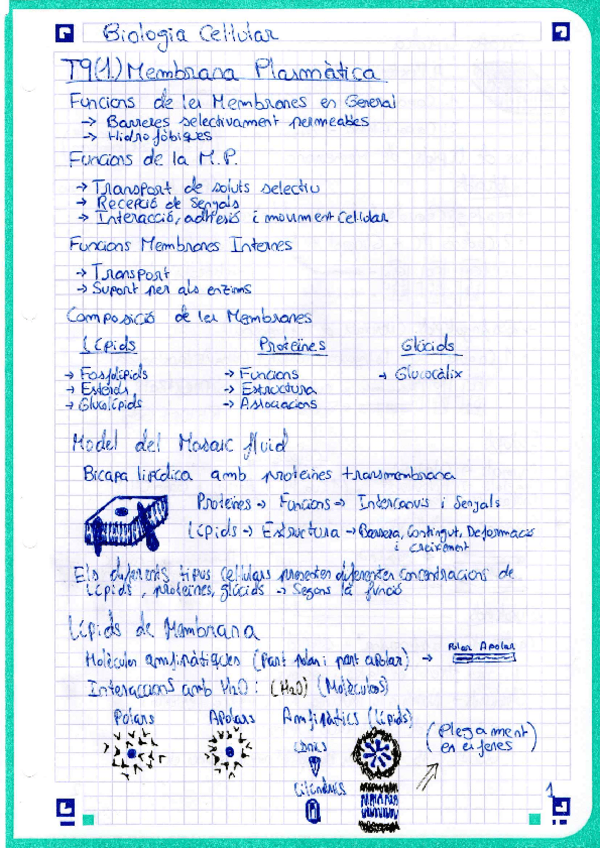 Biologia Cel·lular
T9(1.) Membrana Plasmàtica
Funcions de les Membranes en General
→ Barreres selectivament permeables
→ Hidrofòbiques
Funcions de la M.P.
→ Transport de soluts selectiu
→ Recepció de Senyals
→ Interacció, adhesió i moviment Cel·lular
Funcions Membranes Internes
→ Transport
→ Suport per als enzims
Composició de les Membranes
Lípids Proteïnes Glúcids
→ Fosfolípids → Funcions → Glucocàlix
→ Esteroids → Estructura
→ Glucolípids → Associacions
Model del Mosaic fluid
Bicapa lipídica amb proteïnes transmembrana
Proteïnes → Funcions → Intercanvis i Senyals
Lípids → Estructura → Barrera, Contingut, Deformació
i creixement
Els diferents tipus cel·lulars presenten diferentes concentracions de
lípids, proteïnes, glúcids → Segons la funció
Lípids de Membrana
Molècules amfipàtiques (Part polar i part apolar) →
Polar Apolar
Interaccions amb H2O: (H2O) (Molècules)
Polars Apolars Amfipàtics (lípids)
Cònics
(Plegament
en esferes)
Cilíndrics
1